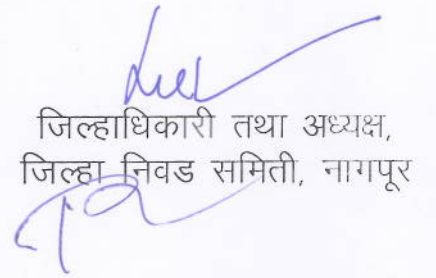 जिल्हाधिकारी तथा अध्यक्ष,
जिल्हा निवड समिती, नागपूर